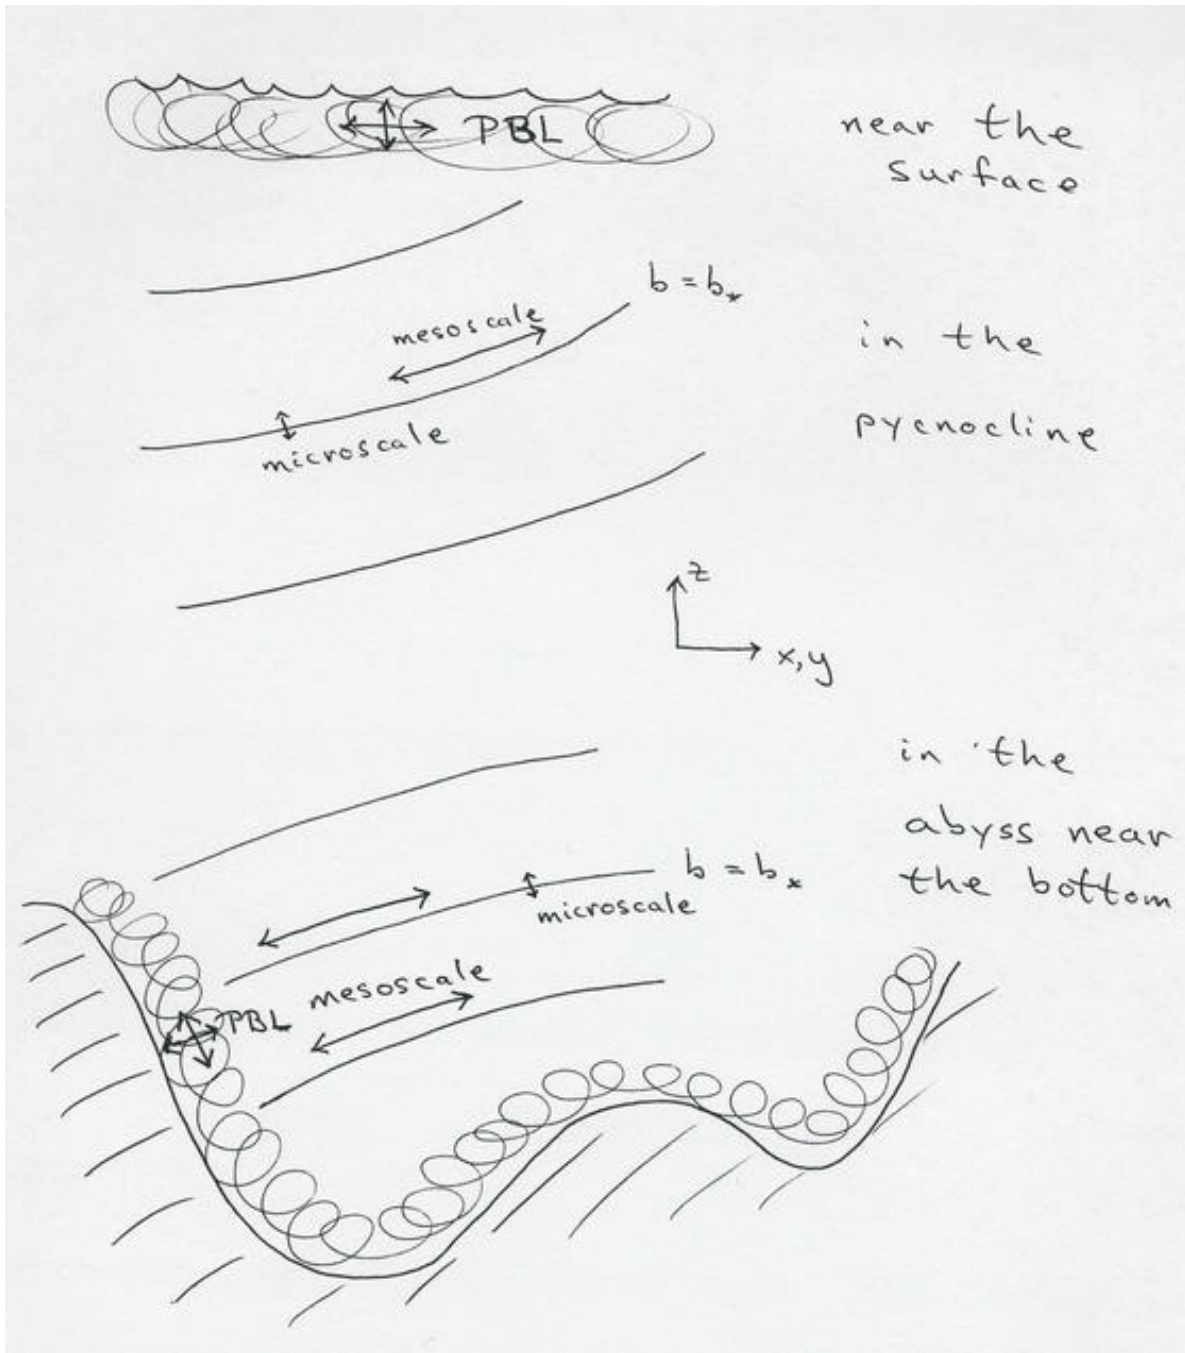 PBL
near the
surface
b = b*
mesoscale
in the
microscale
pycnocline
z
x, y
in the
abyss near
b = b*
the bottom
microscale
mesoscale
PBL